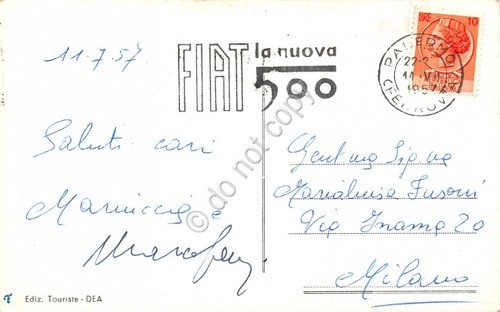 11.7.57
FIAT la nuova
500
LIRE 10
PALERMO
22-2
11 VII
1957
(FERROV.)
Saluti cari
Mariuccia e
Gent.ma Sig.na
Marialuisa Fusoni
Via Inama 20
Milano
© do not copy
Ediz. Touriste - DEA